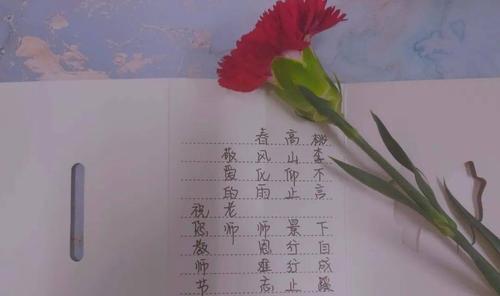 桃李不言下自成蹊
高山仰止景行行止
春风化雨师恩难忘
敬爱的老师
祝您教师节